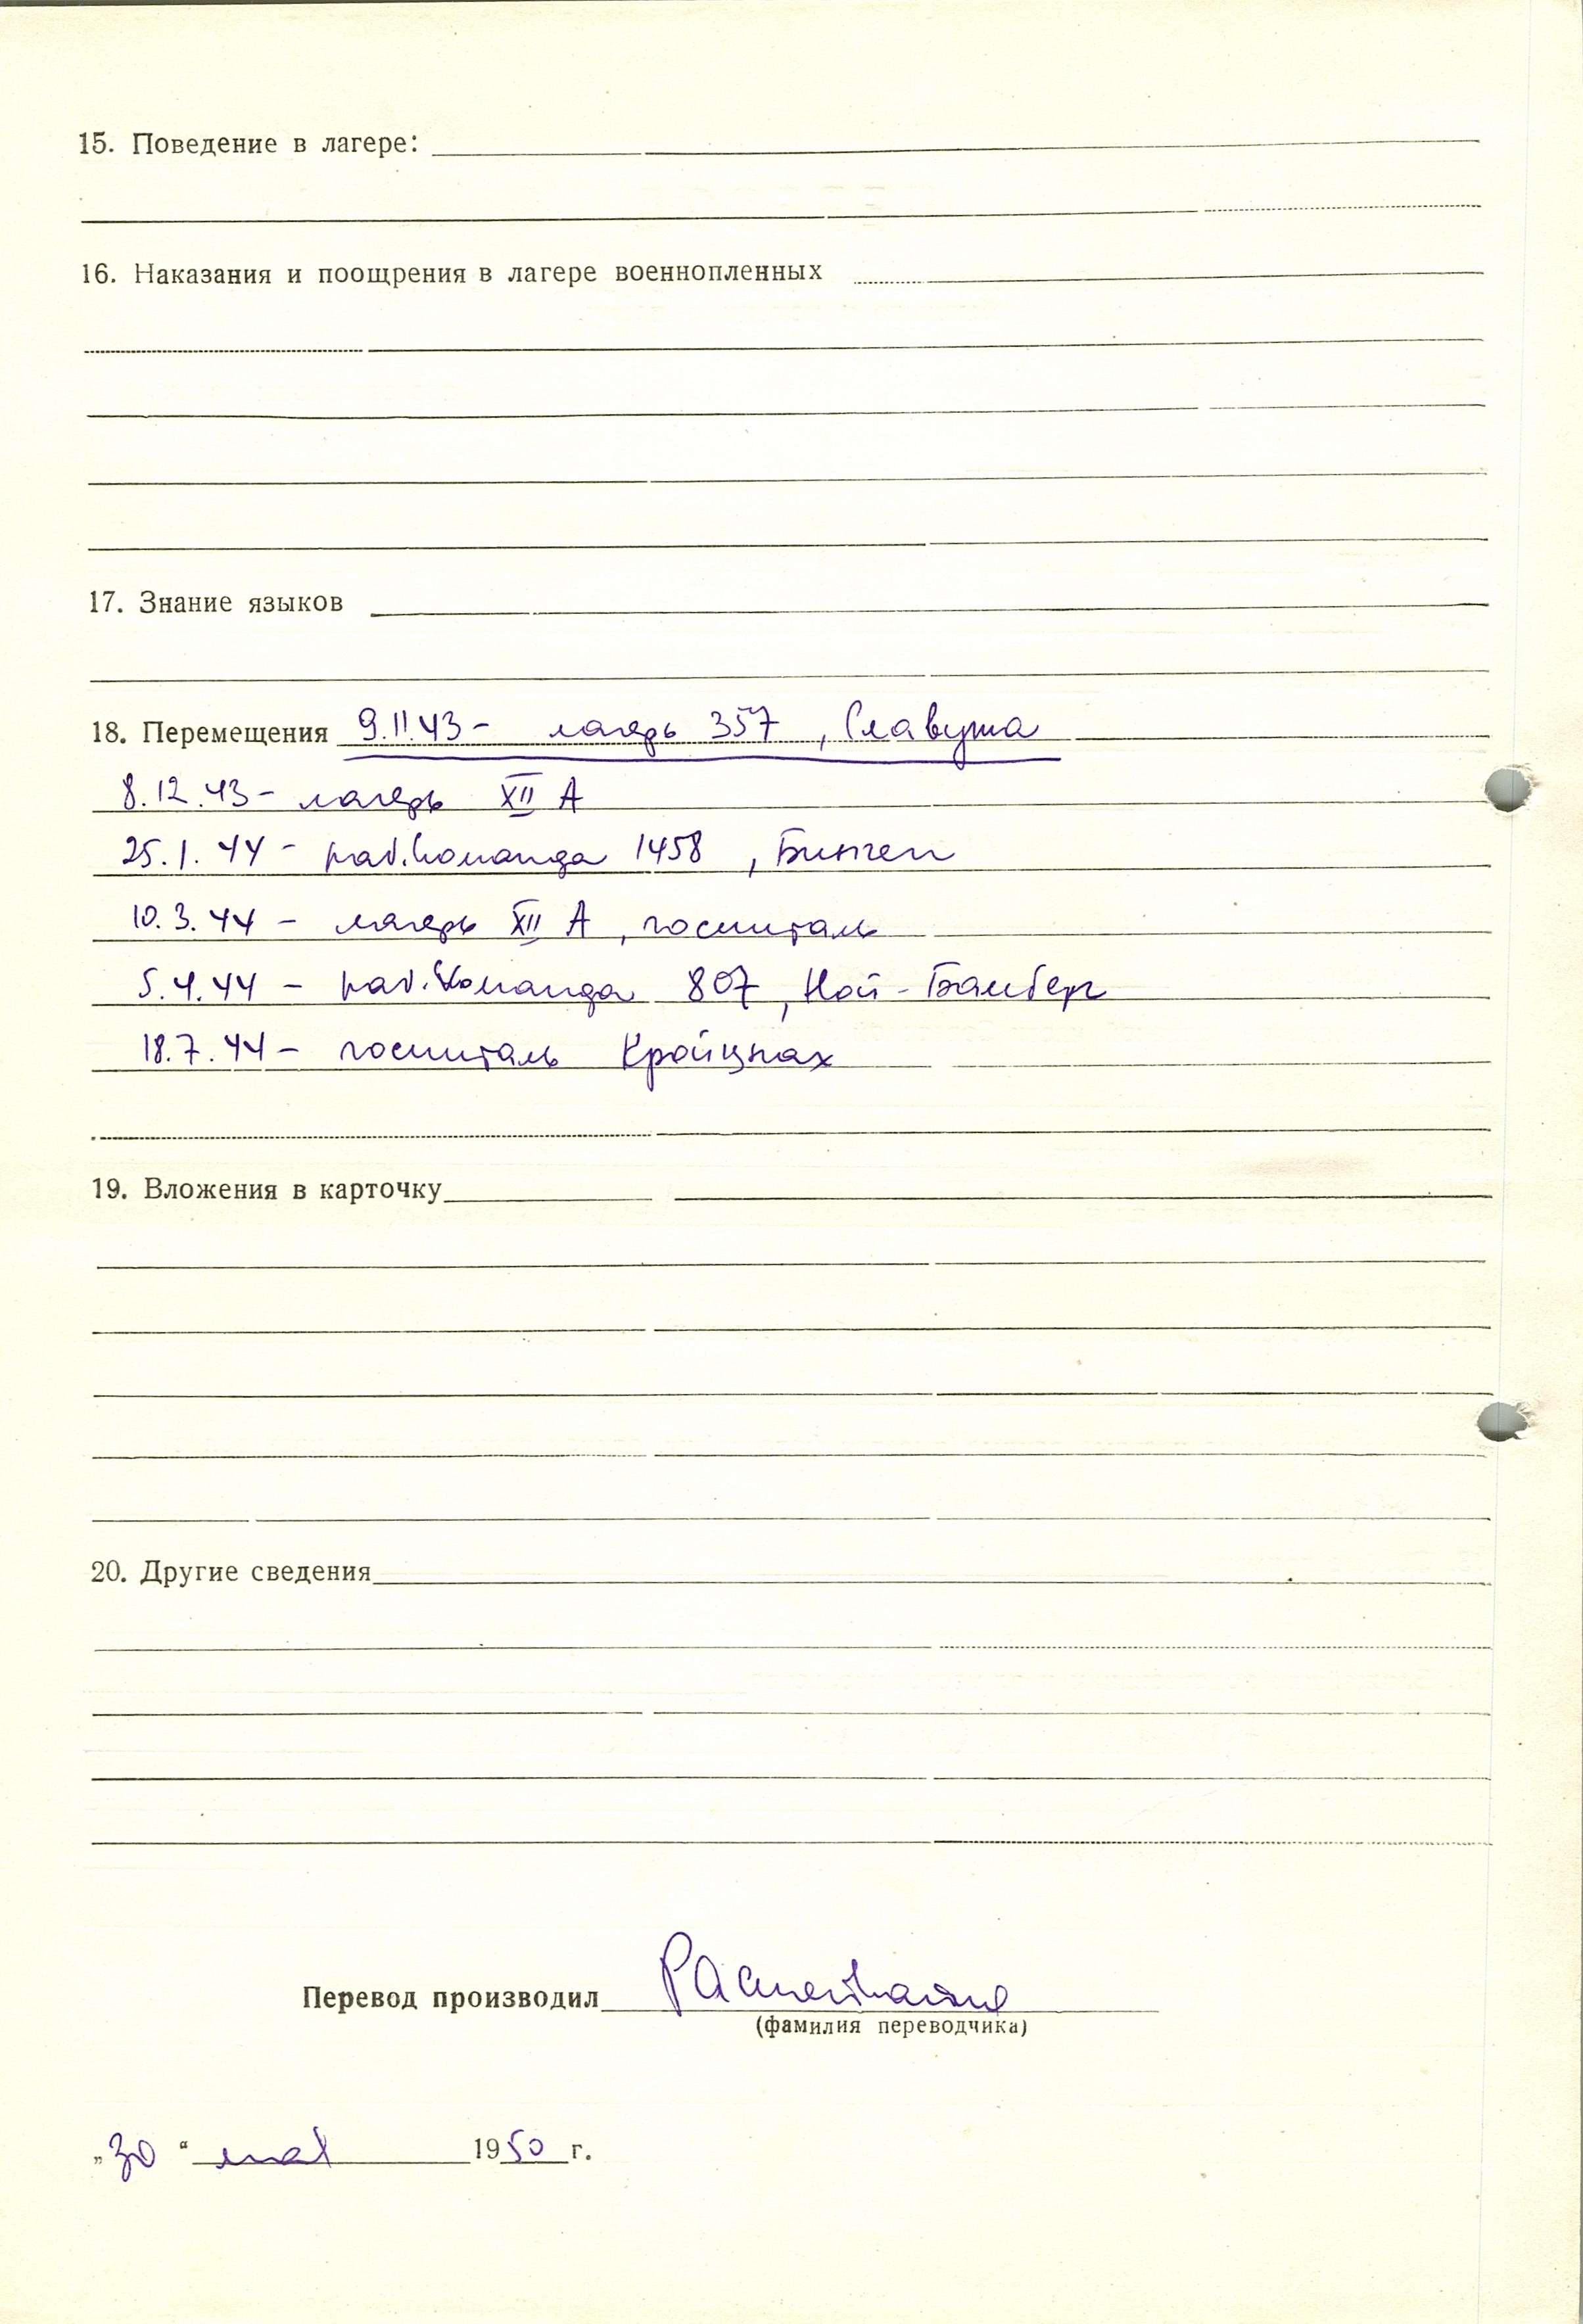 15. Поведение в лагере:
16. Наказания и поощрения в лагере военнопленных
17. Знание языков
18. Перемещения 9.11.43 - лагерь 357, Славута
8.12.43 - лагерь XII А
25.1.44 - раб.команда 1458, Бинген
10.3.44 - лагерь XII А, госпиталь
5.4.44 - раб.команда 807, Ной-Бамберг
18.7.44 - госпиталь Кройцнах
19. Вложения в карточку
20. Другие сведения
Перевод производил
(фамилия переводчика)
„30“ мая 1950 г.